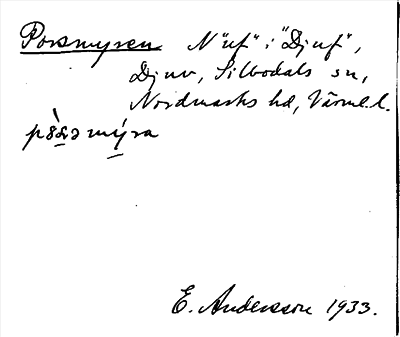 Porsmyren N "uf" i "Djuf",
Djuv, Silbodals sn,
Nordmarks hd, Värml. l.
E. Andersson 1933.